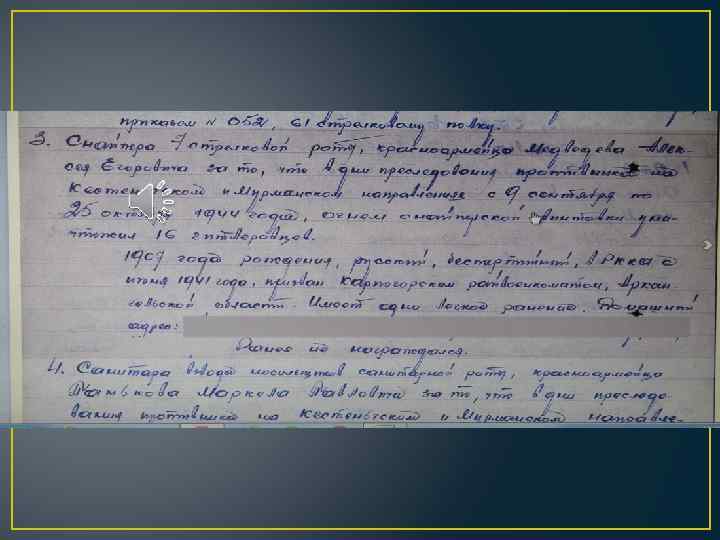 приказом N 052, 61 стрелковому полку.
3. Снайпера 7 стрелковой роты, красноармейца Медведева Алек-
сея Егоровича за то, что в дни преследования противника на
Кестеньгском и Мурманском направлениях с 9 сентября по
25 октября 1944 года, огнем снайперской винтовки уни-
чтожил 16 гитлеровцев.
1909 года рождения, русский, беспартийный, в РККА с
1941 года, призван Карпогорским райвоенкоматом, Архан-
гельской области. Имеет одно легкое ранение. Домашний
адрес:
Ранее не награждался.
4. Санитара взвода носильщиков санитарной роты, красноармейца
Павловича за то, что в дни преследо-
вания противника на Кестеньгском и Мурманском направле-